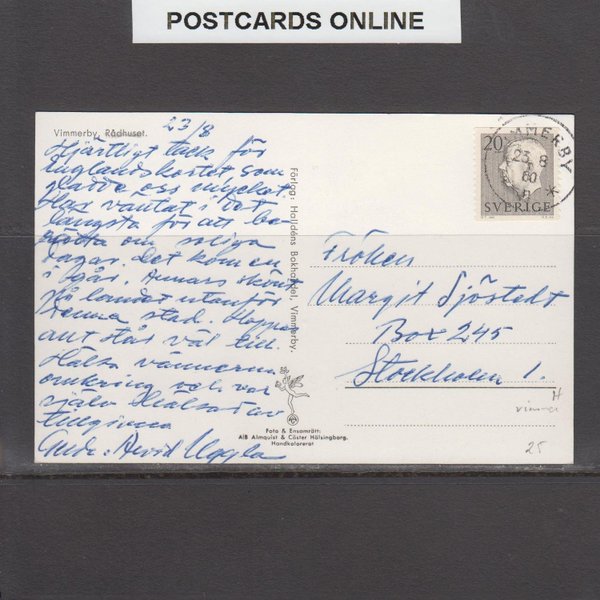 POSTCARDS ONLINE
Vimmerby, Rådhuset.
23/8
Hjärtligt tack för
Englandskortet som
gladde oss mycket.
Har väntat i det
längsta för att be-
rätta om soliga
dagar. Det kom en
i går. Annars skönt
på landet utanför
denna stad. Hoppas
allt står väl till.
Hälsa vännerna
omkring och var
själv hälsad av
tillgivna
Arvid Uggla
Förlag: Halldéns Bokhandel, Vimmerby.
Foto & Ensamrätt:
A/B Almquist & Cöster Hälsingborg.
Handkolorerat
20
SVERIGE
VIMMERBY
23 8
60
Fröken
Margit Sjöstedt
Box 245
Stockholm 1.
H
25